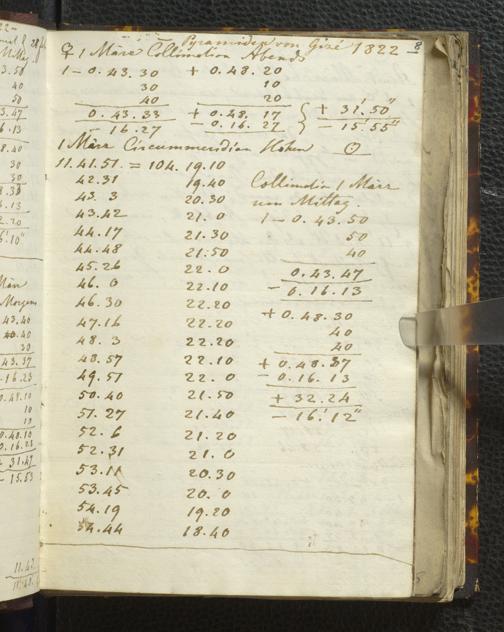 Pyramiden von Gizé 1822 8
♀ 1 März Collimation Abends
1 - 0.43.30 + 0.48.20
30 10
40 20
0.43.33 + 0.48.17 { + 31'.50"
- 16.27 - 0.16.27 - 15'.55"
1 März Circummeridian Höhen ☉
11.41.51. = 104.19.10
42.31 19.40 Collimation 1 März
43.3 20.30 von Mittag.
43.42 21.0 1 - 0.43.50
44.17 21.30 50
44.48 21.50 40
45.26 22.0 0.43.47
46.0 22.10 - 0.16.13
46.30 22.20
47.16 22.20 + 0.48.30
48.3 22.20 40
48.57 22.10 40
49.51 22.0 + 0.48.37
50.40 21.50 - 0.16.13
51.27 21.40 + 32.24
52.6 21.20 - 16'.12"
52.31 21.0
53.11 20.30
53.45 20.0
54.19 19.20
54.44 18.40